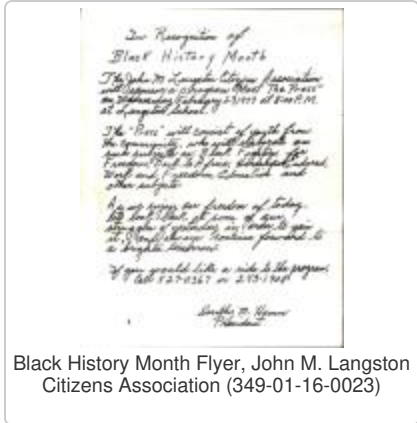 In Recognition of
Black History Month
The John M. Langston Citizens Association
will sponsor a program "Meet The Press"
on Wednesday, February at 8:00 P.M.
at Langston School.
The "Press" will consist of youth from
the community, who will elaborate on
such subjects as Black
Freedom, Back to Africa,
Work and, Freedom, Education and
other subjects
As we enjoy our freedom of today
let look back at some of our
struggles of yesterday in order to gain
it, and always continue forward to
a brighter tomorrow.
If you would like a ride to the program
Call 527-0367 or
Dorothy M.
President
Black History Month Flyer, John M. Langston
Citizens Association (349-01-16-0023)